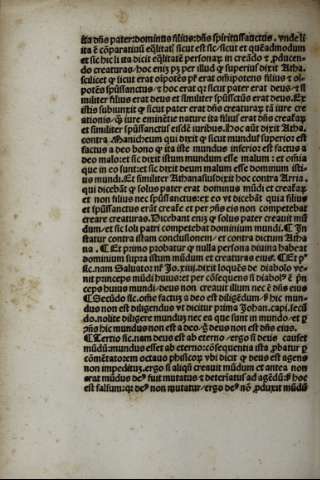 ita dñs pater: dominus filius: dñs spirituſſanctus. vnde li
ita ē cōparatiuū eq̄litatꝭ ſicut eſt ſic: ſicut et quēadmodum
et ſic hic li ita dicit eq̄litatē perſonaꝝ in creādo ⁊ ꝓducen-
do creaturas: hoc eniꝫ pꝫ per illud qꝫ ſuperius dixit Atha.
ſcilicet ꝙ ſicut erat oīpotēs pr̄ erat oīpotens filius ⁊ oī-
potēs ſpūſſanctus: ⁊ hoc erat qꝛ ſicut pater erat deus: ⁊ ſi
militer filius erat deus et ſimiliter ſpūſſctūs erat deus. Ex
iſtis ſubiunxit ꝙ ſicut pater erat dñs creaturaꝝ tā iure cre
ationis: ꝙ̄ iure eminētie nature ita filius erat dñs creaꝝ
et ſimiliter ſpūſſanctus eiſdē iuribus. Hoc aūt dixit Atha.
contra Manicheum qui dixit ꝙ ſicut mundus ſuperior eſt
factus a deo bono ꝙ ita iſte mundus inferior eſt factus a
deo malo: et ſic dixit iſtum mundum eſſe malum: et omīa
que in eo ſunt: et ſic dixit deum malum eſſe dominum iſti-
us mundi. Et ſimiliter Athanaſius dixit hoc contra Arria.
qui dicebāt ꝙ ſolus pater erat dominus mūdi et creaꝝ
et non filius nec ſpūſſanctus: ex eo vt dicebāt quia filius
et ſpūſſanctus erāt creatē et per pñs eis non competebat
creare creaturas. Dicebant eniꝫ ꝙ ſolus pater creauit mū
dum: et ſic ſoli patri competebat dominium mundi. ¶ In
ſtatur contra iſtam concluſionem: et contra dictum Atha
na. ¶ Et primo probatur ꝙ nulla perſona diuina habeat
dominium ſupra iſtum mūdum et creaturas eius. ¶ Et pº
ſic. nam Saluator nꝛ̄ Jo. xiiij. dixit loquēs de diabolo ve
nit princeps mūdi huius: et per cōſequens ſi diabolꝰ ē pn̄
ceps huius mundi: deus non creauit illum nec ē dñs eius
¶ Secūdo ſic. om̄e factuꝫ a deo eſt diligēdum: ſꝫ hic mun-
duo non eſt diligendus vt dicitur prima Johan. capi. ſecū
do. nolite diligere mundum nec ea que ſunt in mundo: et ꝑ
pñs hic mundus non eſt a deo: ꝗ̄ deus non eſt dñs eius.
¶ Tertio ſic. nam deus eſt ab eterno: ergo ſi deus cauſet
mūdū: mundus eſſet ab eterno: cōſequentia iſta ꝓbatur ꝑ
cōmētatorem octauo phiſicoꝝ vbi dicit ꝙ deus eſt agens
non impedituꝫ. ergo ſi aliqñ creauit mūdum et antea non
erat mūdus deꝰ fuit mutatus ⁊ determīatus ad agēdū: ſꝫ hoc
eſt falſum: qꝛ deꝰ non mutatur: ergo deꝰ nō ꝓduxit mūdū